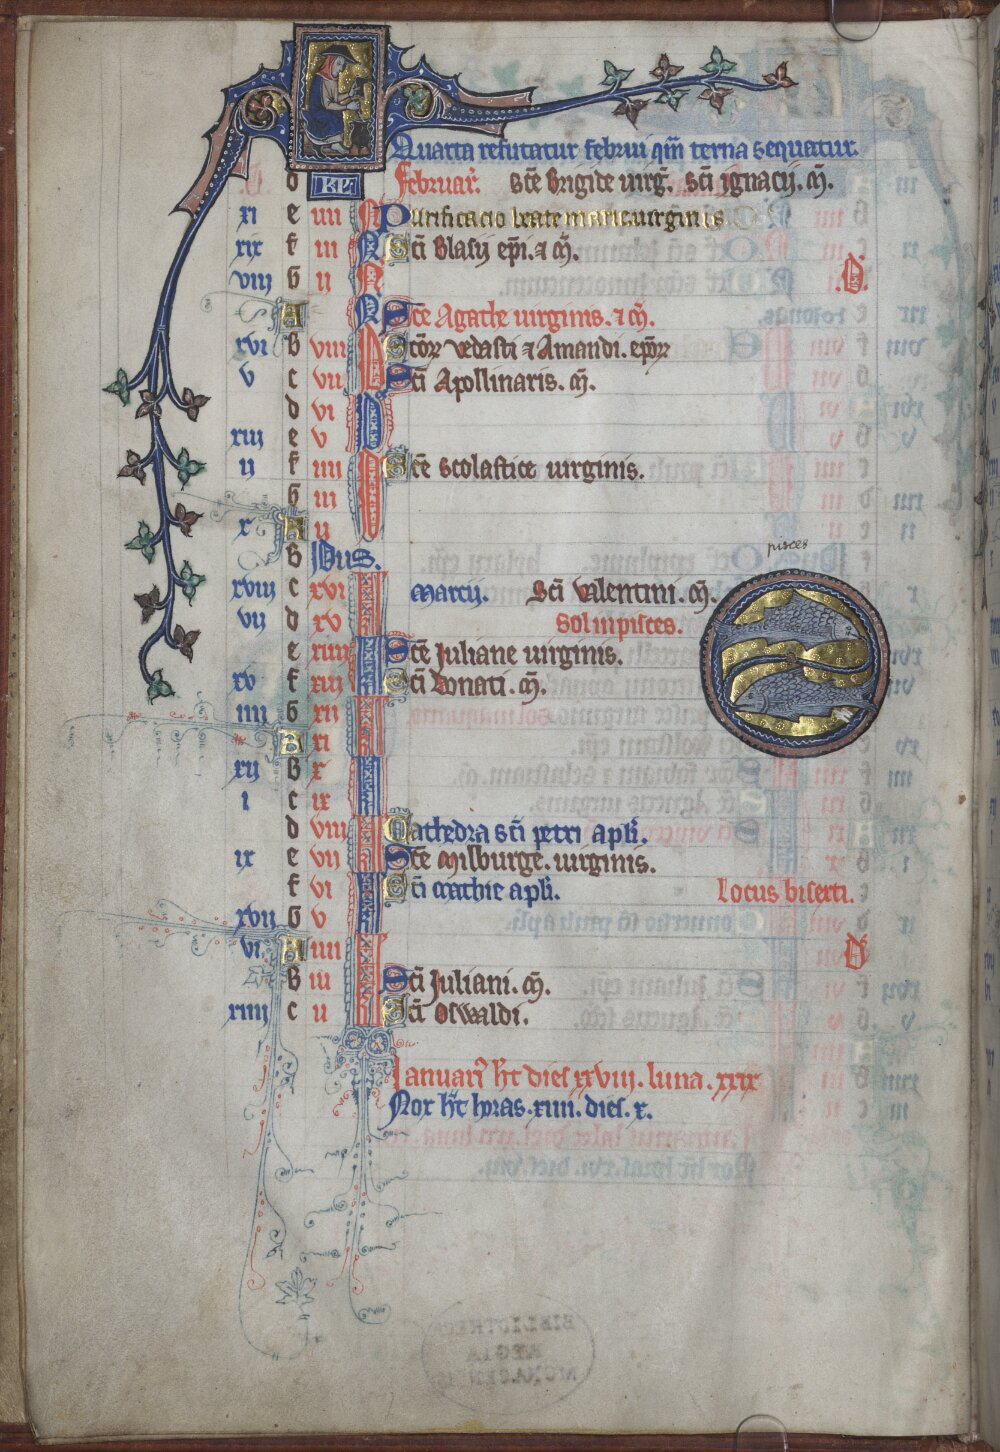 Quarta refutatur februi qm̃ terna sequatur.
d KL februar̃. Scẽ Brigide uirg̃. Sc̃i Ignacij. m̃.
xi e iiii N Purificacio beate marie uirginis.
xix f iii N Sc̃i Blasij ep̃i. ⁊ m̃.
viii g ii N D.
A N Scẽ Agathe uirginis. ⁊ m̃.
xvi b viii Sc̃orꝝ Vedasti ⁊ Amandi. ep̃orꝝ
v c vii Sc̃i Apollinaris. m̃.
d vi
xiii e v
ii f iiii Scẽ Scolastice uirginis.
g iii
x A ii
b Idus.
pisces
xviii c xvi Marcij. Sc̃i Valentini. m̃.
vii d xv Sol in pisces.
e xiiii Scẽ Juliane uirginis.
xv f xiii Sc̃i Donati. m̃.
iiii g xii
A xi
xii b x
i c ix
d viii Cathedra sc̃i petri apl̃i.
ix e vii Scẽ Milburge. uirginis.
f vi Sc̃i Mathie apl̃i. Locus biserti.
xvii g v
vi A iiii D
b iii Sc̃i Juliani. m̃.
xiiii c ii Sc̃i Oswaldi.
Januari᾽ h̃t dies xxviii. luna. xxix
Nox h̃t horas. xiiii. dies. x.
BIBLIOTHECA
REGIA
MONACENSIS